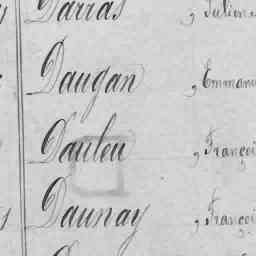 Darras , Julien
Daugan , Emmanu
Dauleu , Françoi
Daunay , Françoi